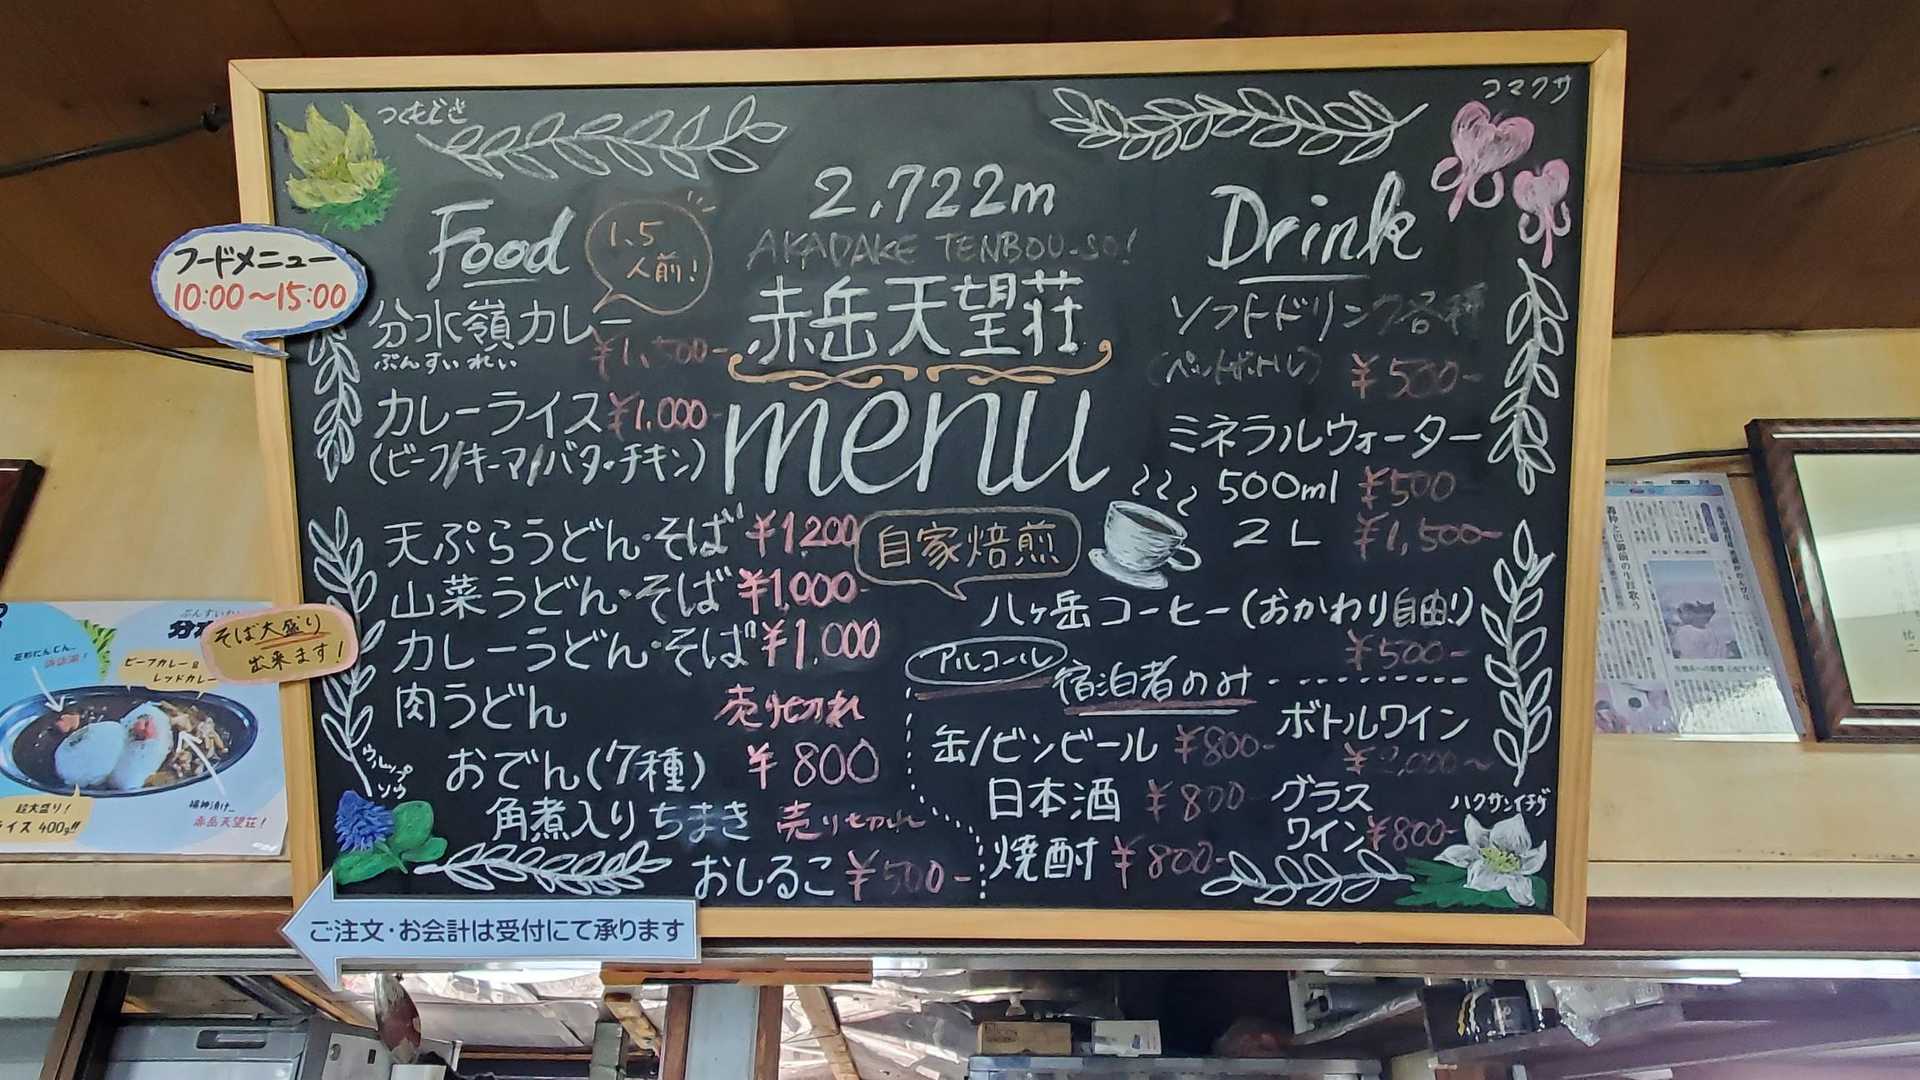 つくもぐさ
コマクサ
フードメニュー
10:00～15:00
Food
1.5
人前!
分水嶺カレー
ぶんすいれい
¥1,500-
カレーライス ¥1,000-
(ビーフ/キーマ/バターチキン)
天ぷらうどん・そば ¥1,200
山菜うどん・そば ¥1,000-
カレーうどん・そば ¥1,000
肉うどん 売り切れ
おでん(7種) ¥800
角煮入りちまき 売り切れ
おしるこ ¥500-
ウルップ
ソウ
2,722m
AKADAKE TENBOU-SO!
赤岳天望荘
menu
Drink
ソフトドリンク各種
(ペットボトル) ¥500-
ミネラルウォーター
500ml ¥500
2L ¥1,500-
自家焙煎
八ヶ岳コーヒー(おかわり自由!)
¥500-
アルコール
宿泊者のみ
缶/ビンビール ¥800-
日本酒 ¥800-
焼酎 ¥800-
ボトルワイン
¥2,000～
グラス
ワイン ¥800-
ハクサンイチゲ
そば大盛り
出来ます!
ビーフカレー&
レッドカレー
福神漬け
赤岳天望荘!
超大盛り!
ライス 400g!!
ご注文・お会計は受付にて承ります